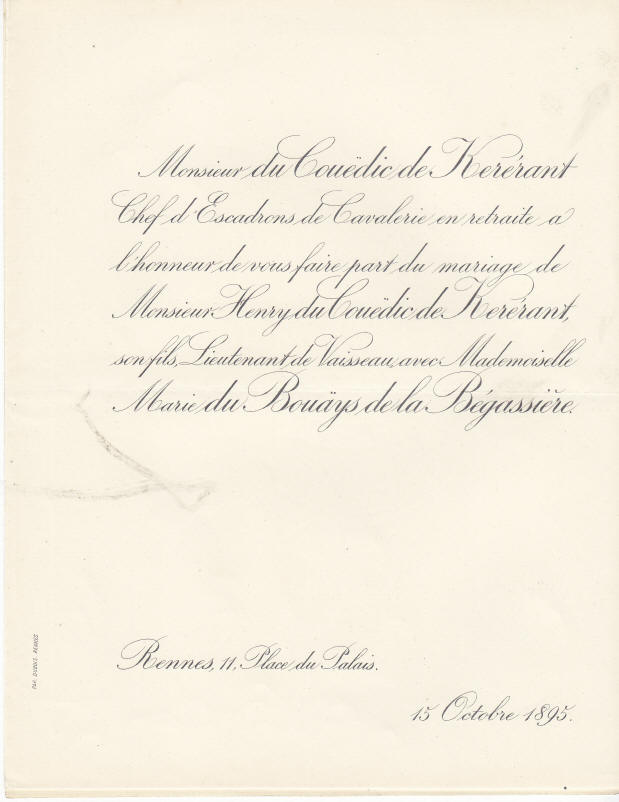 Monsieur du Couëdic de Kerérant
Chef d'Escadrons de Cavalerie en retraite a
l'honneur de vous faire part du mariage de
Monsieur Henry du Couëdic de Kerérant,
son fils, Lieutenant de Vaisseau, avec Mademoiselle
Marie du Bouäys de la Bégassière.
Rennes, 11, Place du Palais.
15 Octobre 1895.